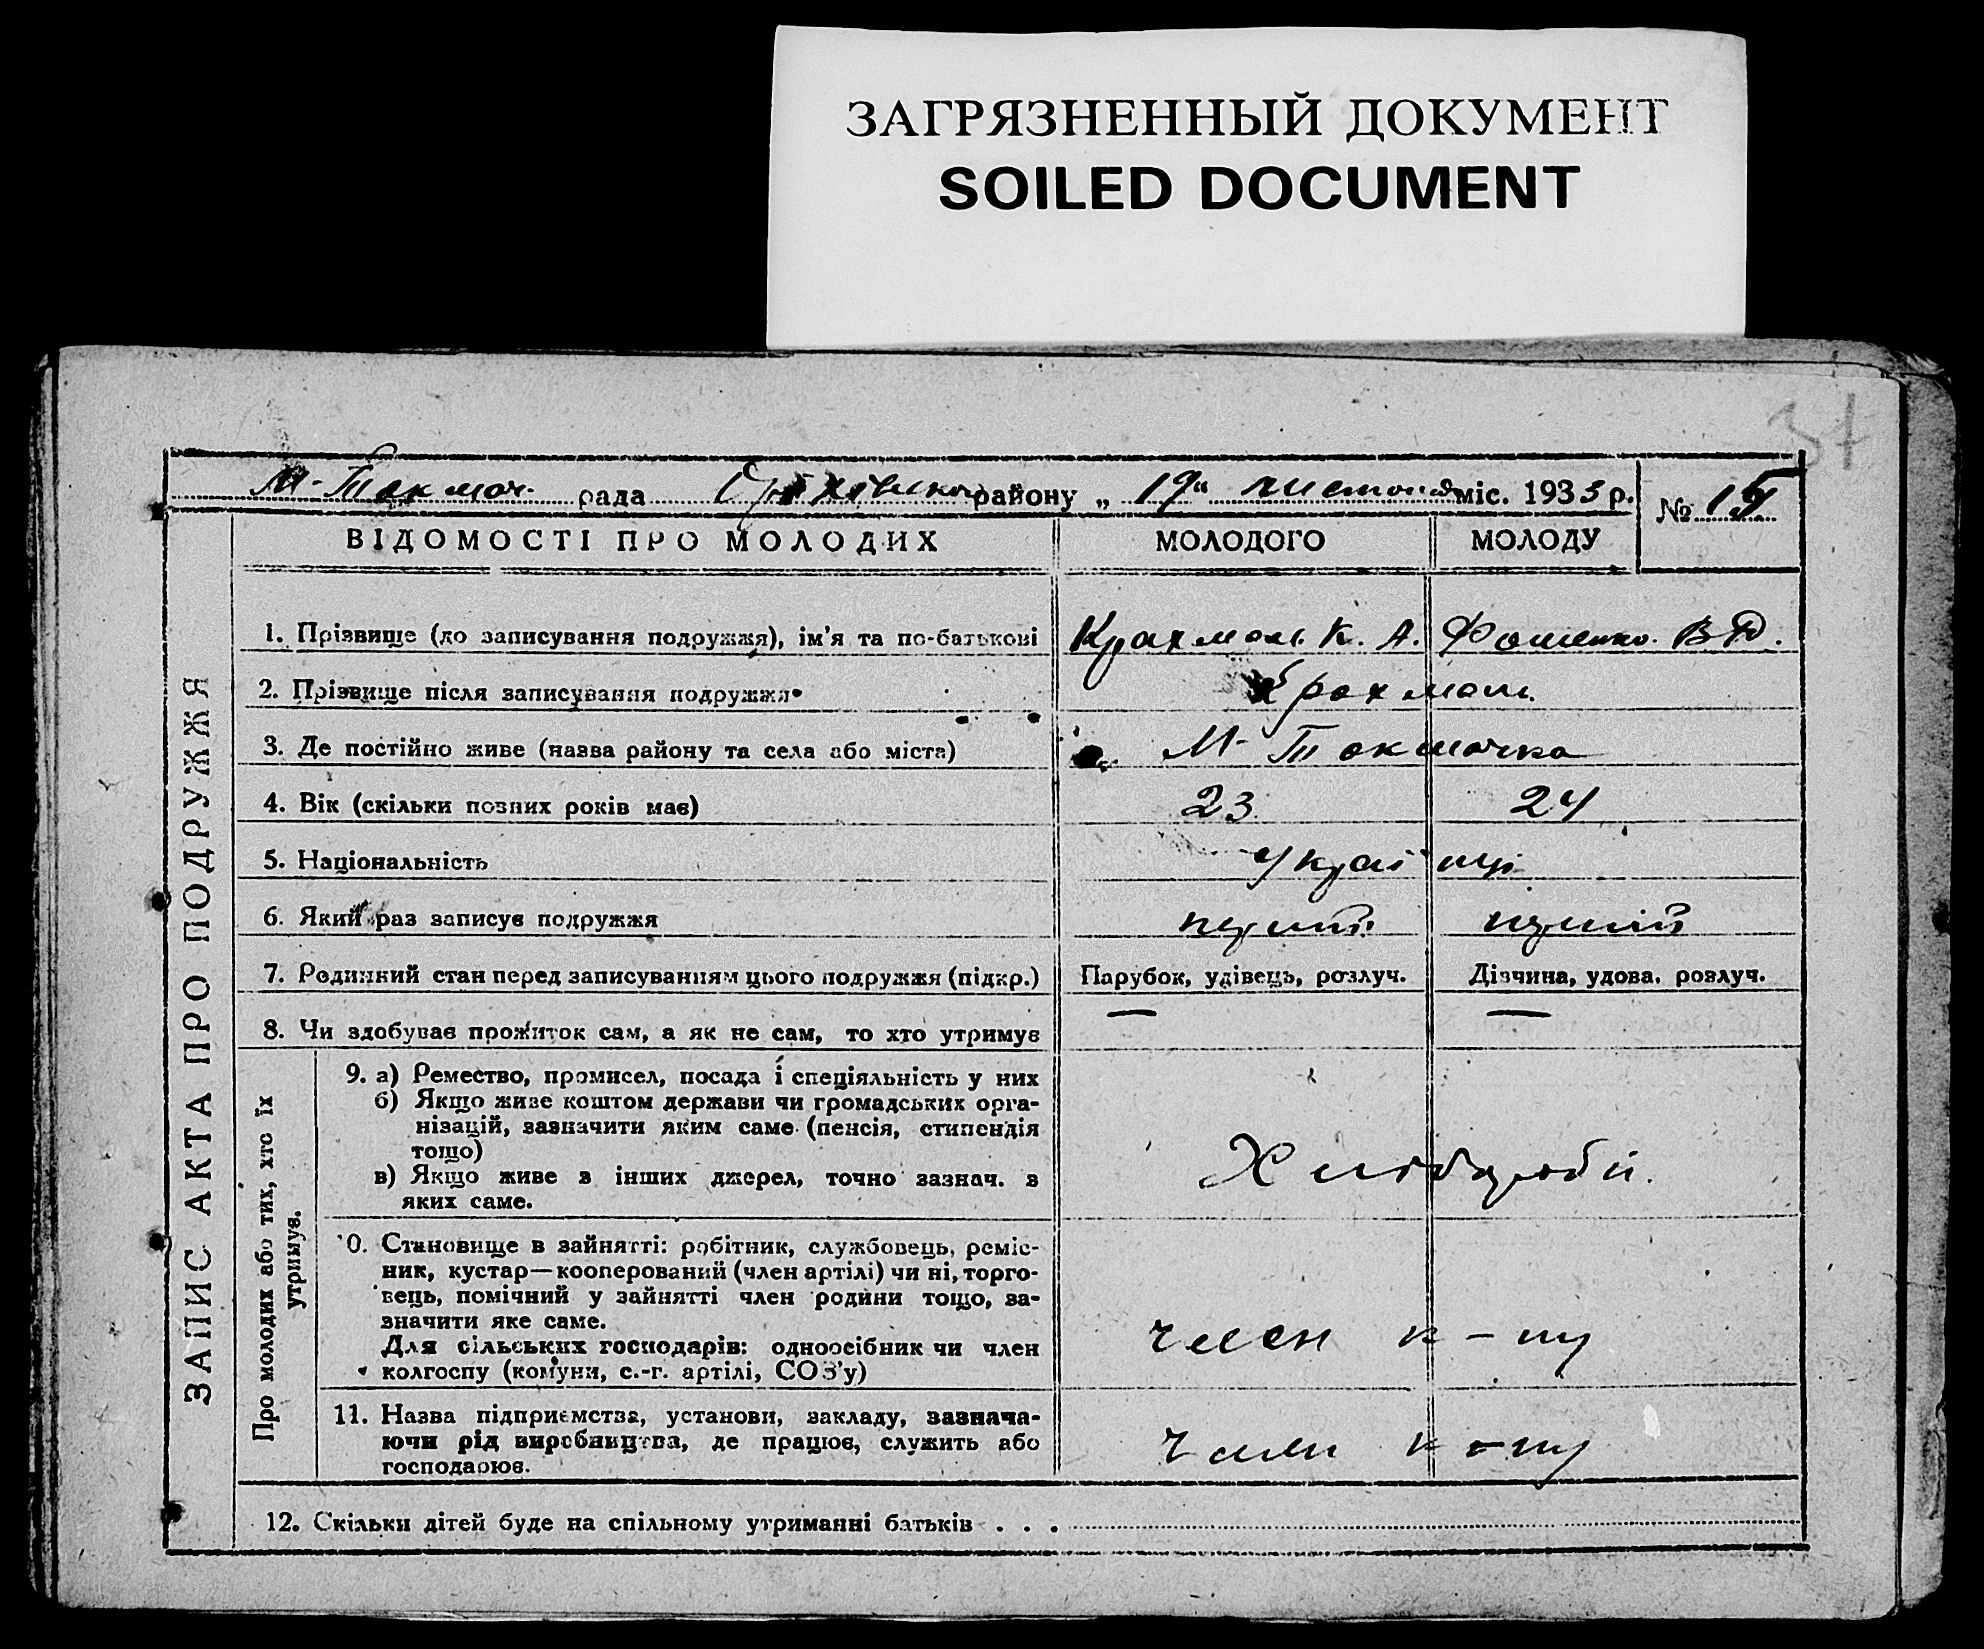 ЗАГРЯЗНЕННЫЙ ДОКУМЕНТ
SOILED DOCUMENT
37
М-Токмач. рада Оріхівськ району „19“ листопад міс. 1933 р. № 15
ЗАПИС АКТА ПРО ПОДРУЖЖЯ
ВІДОМОСТІ ПРО МОЛОДИХ МОЛОДОГО МОЛОДУ
1. Прізвище (до записування подружжя), ім'я та по-батькові Крахмаль К. А. Фоменко В
2. Прізвище після записування подружжя
3. Де постійно живе (назва району та села або міста) М-Токмачка
4. Вік (скільки повних років має) 23 24
5. Національність Українці
6. Який раз записує подружжя перший перший
7. Родинний стан перед записуванням цього подружжя (підкр.) Парубок, удівець, розлуч. Дівчина, удова, розлуч.
8. Чи здобуває прожиток сам, а як не сам, то хто утримує
Про молодих або тих, хто їх
утримує.
9. а) Ремество, промисел, посада і спеціяльність у них
б) Якщо живе коштом держави чи громадських орга-
нізацій, зазначити яким саме (пенсія, стипендія
тощо)
в) Якщо живе з інших джерел, точно зазнач. з
яких саме.
Хлібороби.
10. Становище в зайнятті: робітник, службовець, реміс-
ник, кустар—кооперований (член артілі) чи ні, торго-
вець, помічний у зайнятті член родини тощо, за-
значити яке саме.
Для сільських господарів: одноосібник чи член
колгоспу (комуни, с.-г. артілі, СОЗ'у)
член к-пу
11. Назва підприємства, установи, закладу, зазнача-
ючи рід виробництва, де працює, служить або
господарює.
член к-пу
12. Скільки дітей буде на спільному утриманні батьків . . .